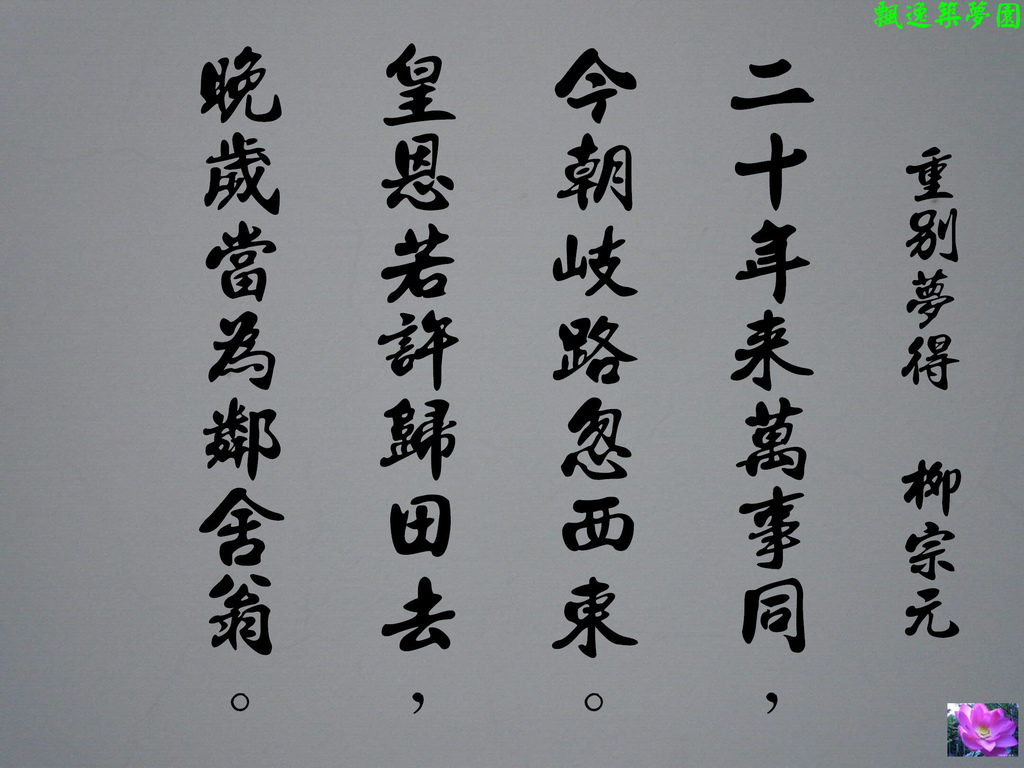 飄逸築夢園
重別夢得 柳宗元
二十年来萬事同，
今朝岐路忽西東。
皇恩若許歸田去，
晚歲當為鄰舍翁。